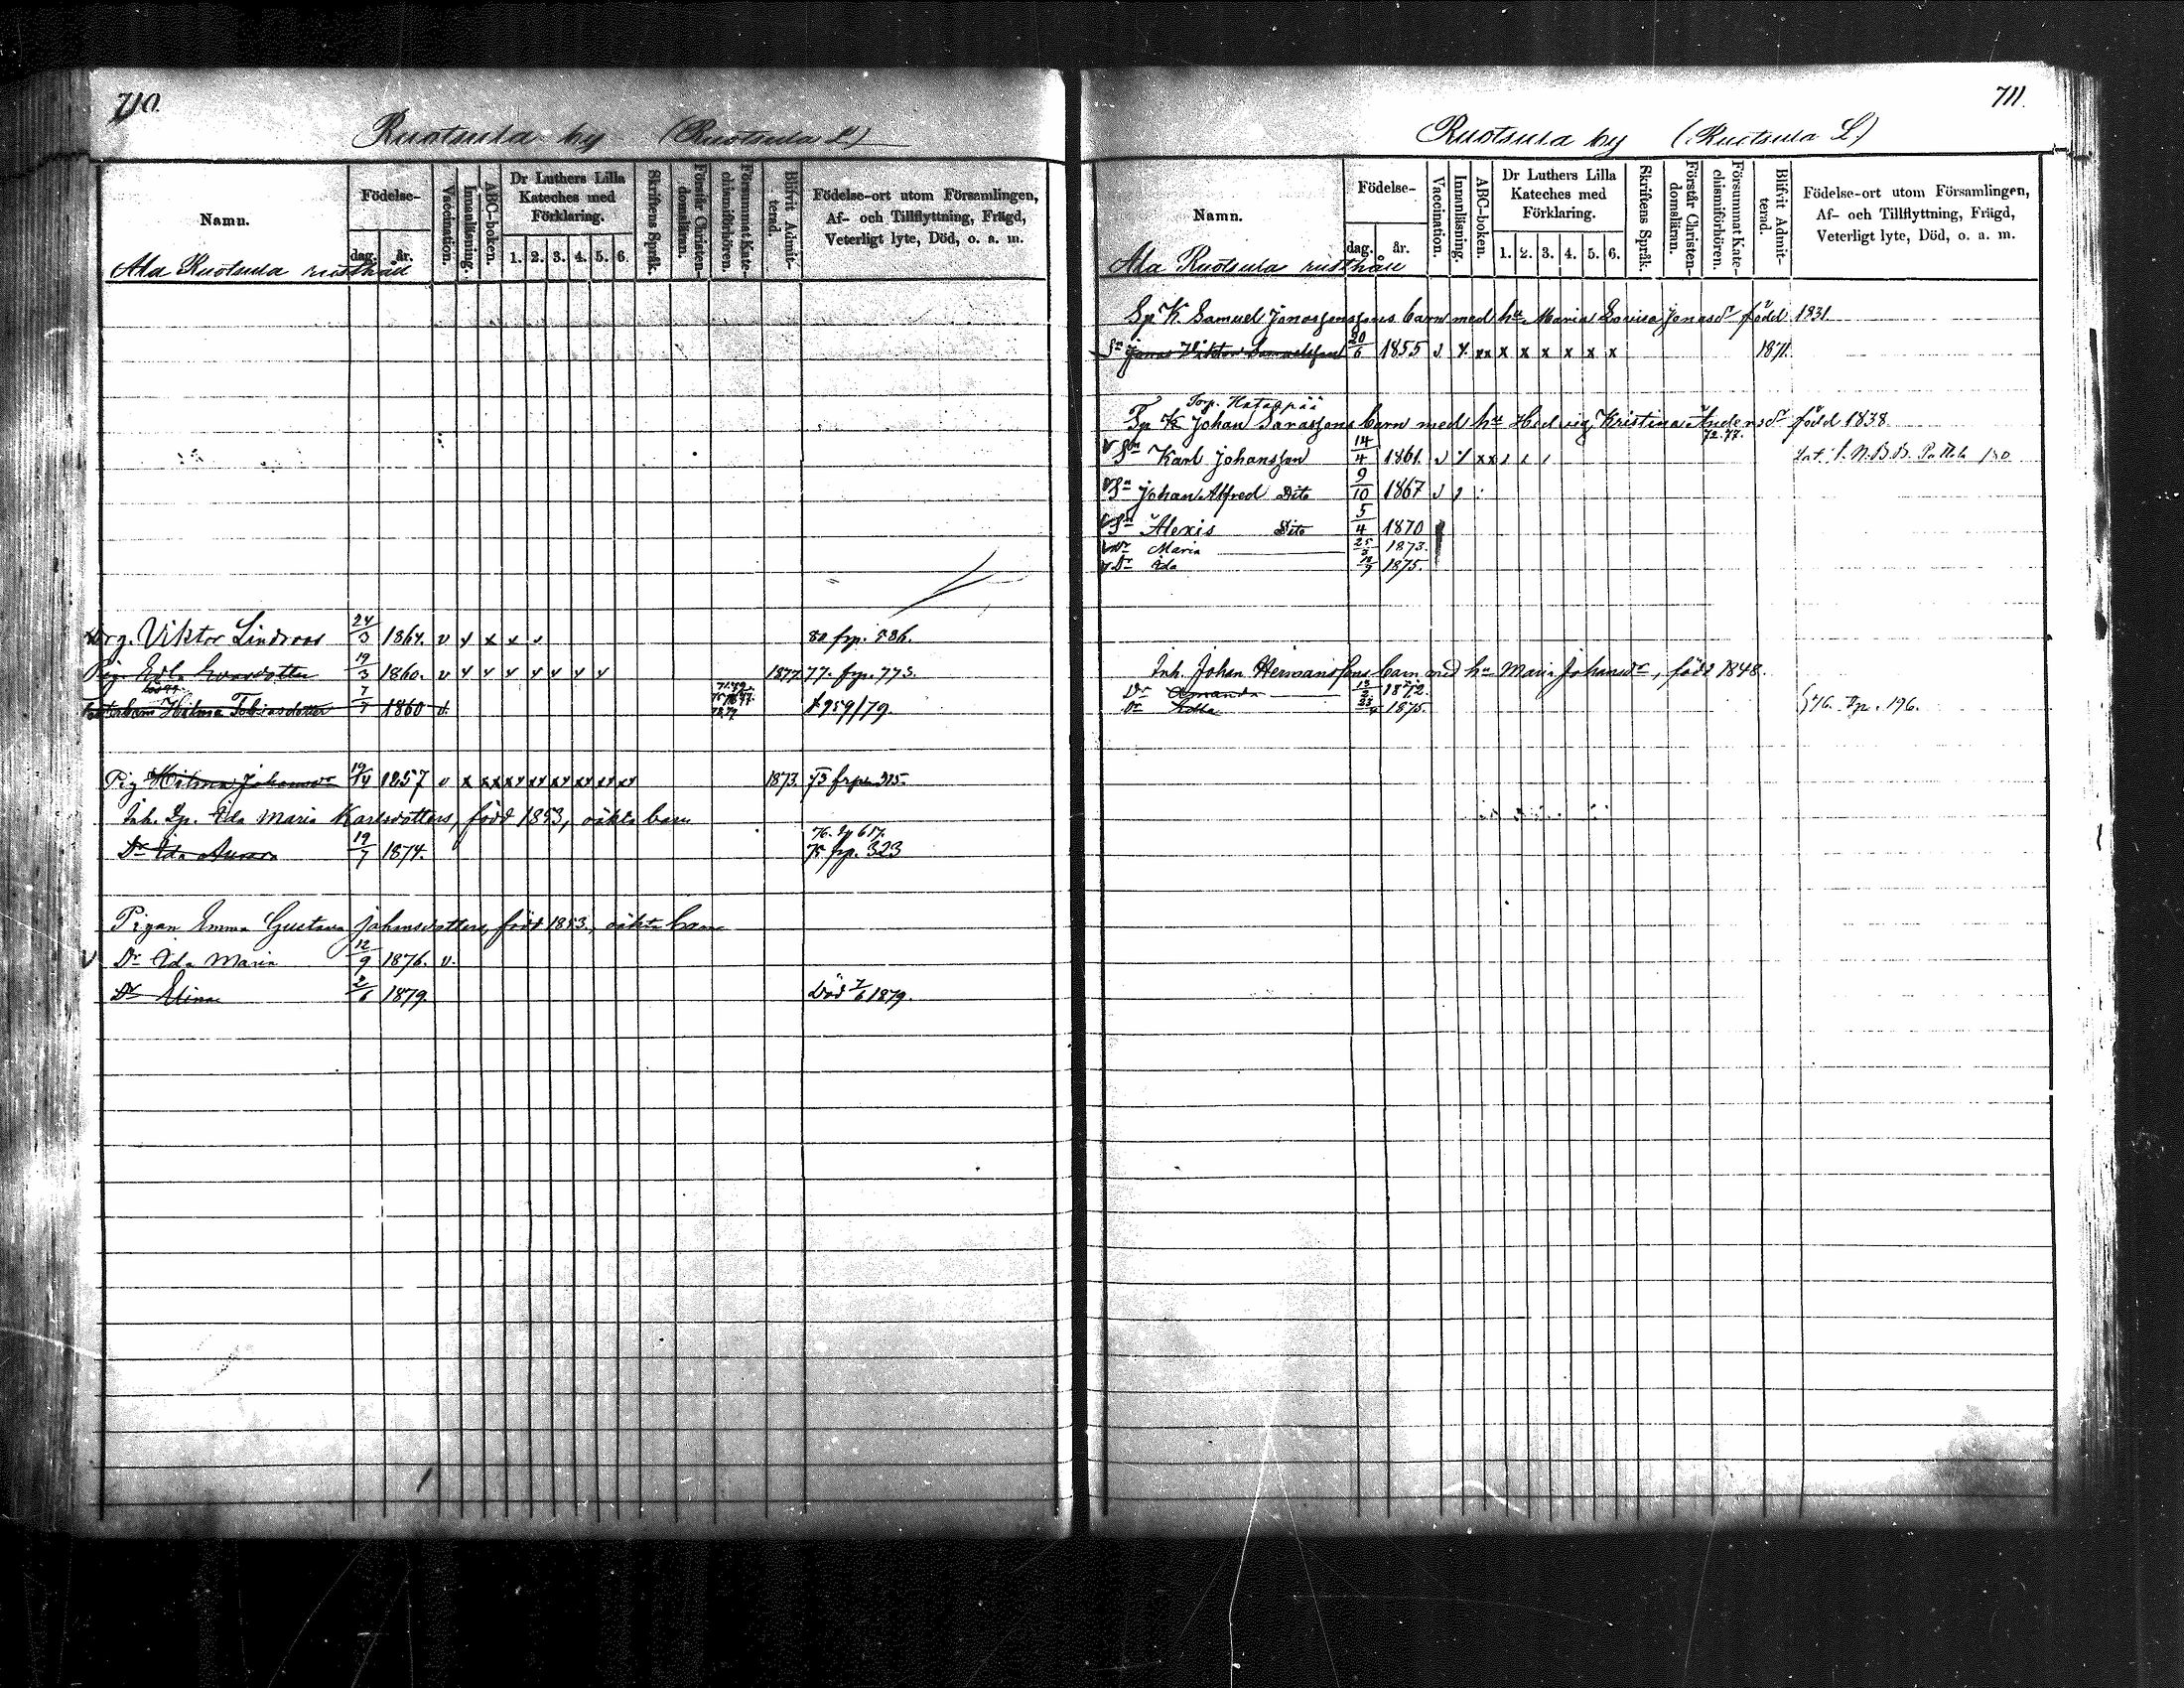 710.
Ruotsula by (Ruotsula L.)
Namn.
Födelse-
dag. år.
Vaccination.
Innanläsning.
ABC-boken.
Dr Luthers Lilla Kateches med Förklaring.
1. 2. 3. 4. 5. 6.
Skriftens Språk.
Förstår Christendomsläran.
Försummat Katechismiförhören.
Blifvit Admitterad.
Födelse-ort utom Församlingen,
Af- och Tillflyttning, Frägd,
Veterligt lyte, Död, o. a. m.
Ala Ruotsula rusthåll
Drg. Viktor Lindroos 24/3 1864. v y x x v 80 frp. 886.
Pig. Edla Evasdotter 19/3 1860. v y y y y y y y y 1877 77. frp. 773.
Hilma Tobiasdotter 7/7 1860 v. 959/79.
Pig Hilma Johansdr 19/4 1857 v x xx xy xy xy xy xy xy 1873. 73 frp 315.
Inh. Ip. Ida Maria Karlsdotters, född 1853, oäkta barn
76. Ip 617.
Dr Ida Aurora 19/7 1874. 75 frp. 323
Pigan Emma Gustava Johansdotters, född 1853., oäkta barn
v Dr Ida Maria 12/9 1876. v.
Dr Elina 2/6 1879. Död 7/6 1879.
711.
Ruotsula by (Ruotsula L.)
Namn.
Födelse-
dag. år.
Vaccination.
Innanläsning.
ABC-boken.
Dr Luthers Lilla Kateches med Förklaring.
1. 2. 3. 4. 5. 6.
Skriftens Språk.
Förstår Christendomsläran.
Försummat Katechismiförhören.
Blifvit Admitterad.
Födelse-ort utom Församlingen,
Af- och Tillflyttning, Frägd,
Veterligt lyte, Död, o. a. m.
Ala Ruotsula rusthåll
Sp. K. Samuel Jonassons barn med hu Maria Lovisa Jonasdr född 1831
Sn Jonas Viktor Samuelsson 20/6 1855 v. y. xx x x x x x x 1871.
Torp. Hatanpää
Tp K Johan Sarassons barn med hu Hedvig Kristina Andersdr född 1838
72. 77.
v Sn Karl Johansson 14/4 1861.
v Sn Johan Alfred Dito 9/10 1867
v Sn Alexis Dito 5/4 1870
v Dr Maria 1873.
v Dr Ida 1875.
Inh. Johan Hermanssons barn med hu Maria Johansdr, född 1848.
Dr Amanda 1872.
Dr Edla 1875. 76. Ip. 196.